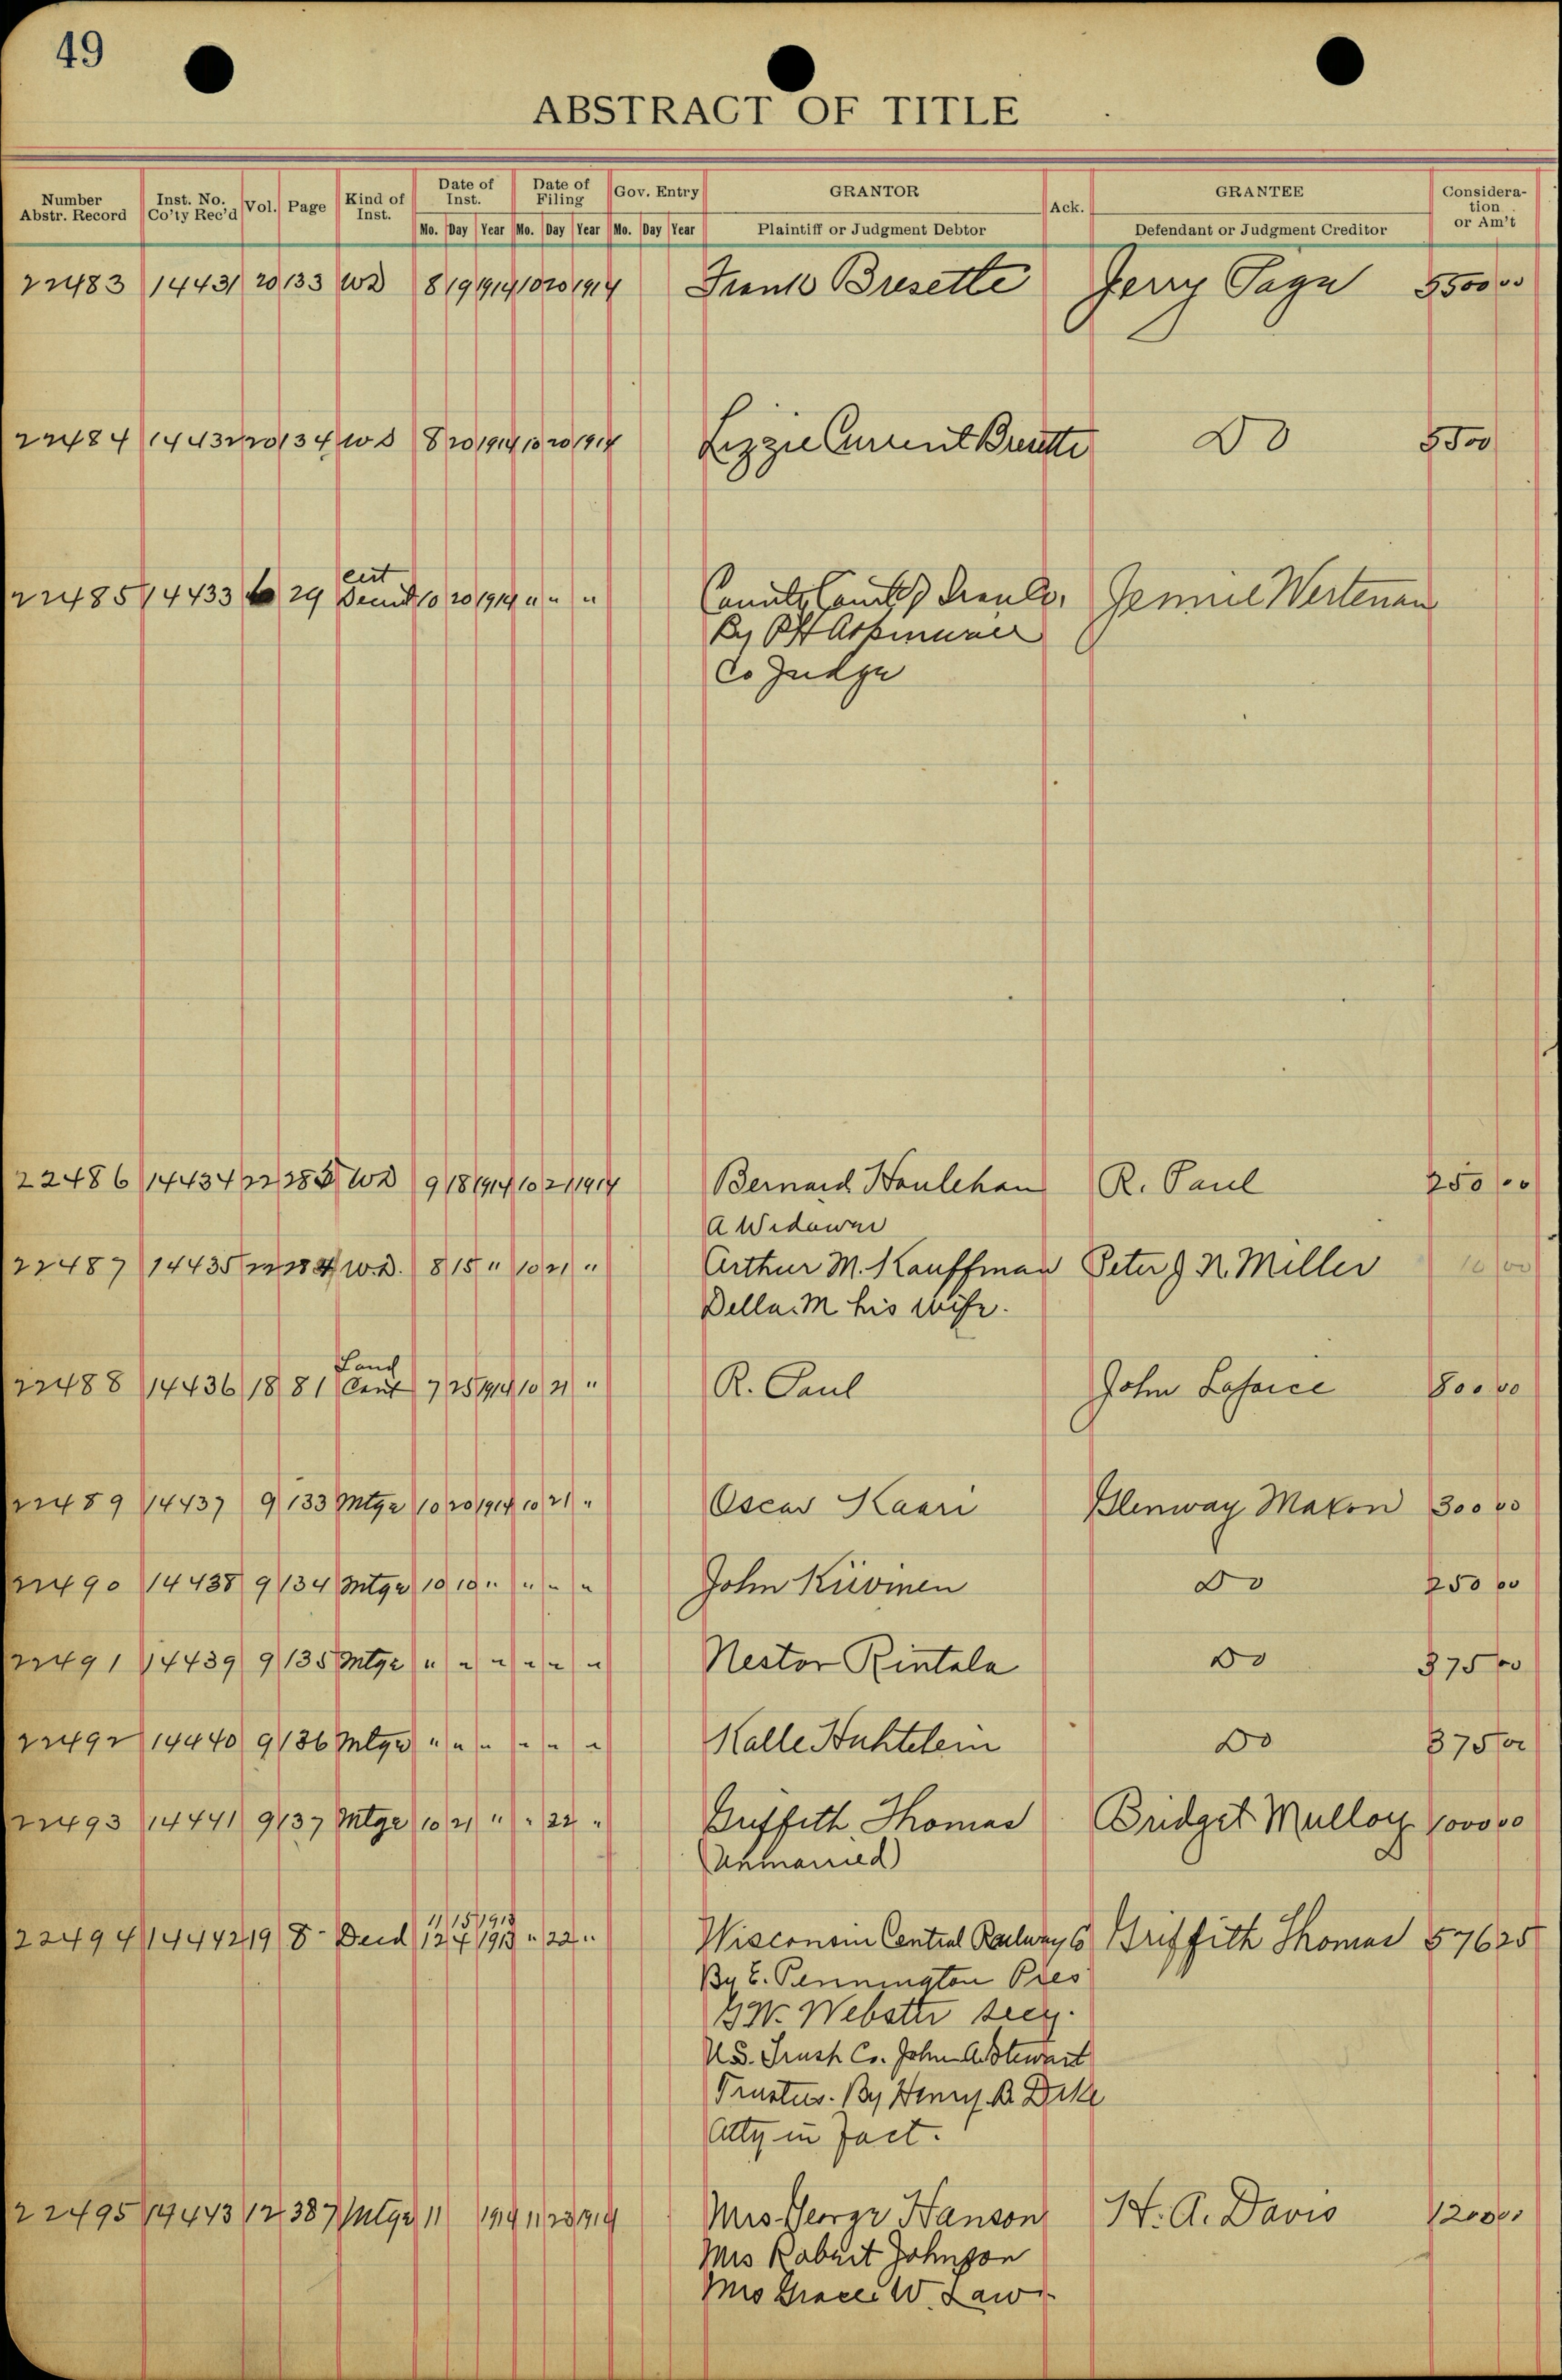 49
ABSTRACT OF TITLE
Number Abstr. Record | Inst. No. Co'ty Rec'd | Vol. | Page | Kind of Inst. | Date of Inst. | Date of Filing | Gov. Entry | GRANTOR | Ack. | GRANTEE | Consideration or Am't
Mo. Day Year Mo. Day Year Mo. Day Year | Plaintiff or Judgment Debtor | Defendant or Judgment Creditor
22483 14431 20 133 WD 8 19 1914 10 20 1914 Frank Bresette Jerry Page 5500 00
22484 14432 20 134 WD 8 20 1914 10 20 1914 Lizzie Current Bresette Do 5500
Cert
22485 14433 29 10 20 1914 " " " Jennie Wertenan
By
Co Judge
22486 14434 22 WD 9 18 1914 10 21 1914 Bernard Houlehan R. Paul 250 00
A Widower
22487 14435 22 184 W.D. 8 15 " 10 21 " Arthur M. Kauffman Peter J N. Miller 10 00
Della. M his wife.
Land
22488 14436 18 81 Cont 7 25 1914 10 21 " R. Paul John Laforce 800 00
22489 14437 9 133 Mtge 10 20 1914 10 21 " Oscar Kaari Glenway Maxon 300 00
22490 14438 9 134 Mtge 10 10 " " " " John Kiivinen Do 250 00
22491 14439 9 135 Mtge " " " " " " Nestor Rintala Do 375 00
22492 14440 9 136 Mtge " " " " " " Kalle Huhtelein Do 375 00
22493 14441 9 137 Mtge 10 21 " " 22 " Griffith Thomas Bridget Mulloy 1000 00
(Unmarried)
11 15 1913
22494 14442 19 8 Deed 12 4 1913 " 22 " Wisconsin Central Railway Co Griffith Thomas 576 25
By E. Pennington Pres
G.W. Webster secy.
U.S. Trust Co. John A. Stewart
Trustees. By Henry B. Dike
Atty in fact.
22495 14443 12 387 Mtge 11 1914 11 23 1914 Mrs. George Hanson H. A. Davis 1200 00
Mrs Robert Johnson
Mrs Grace W. Laws